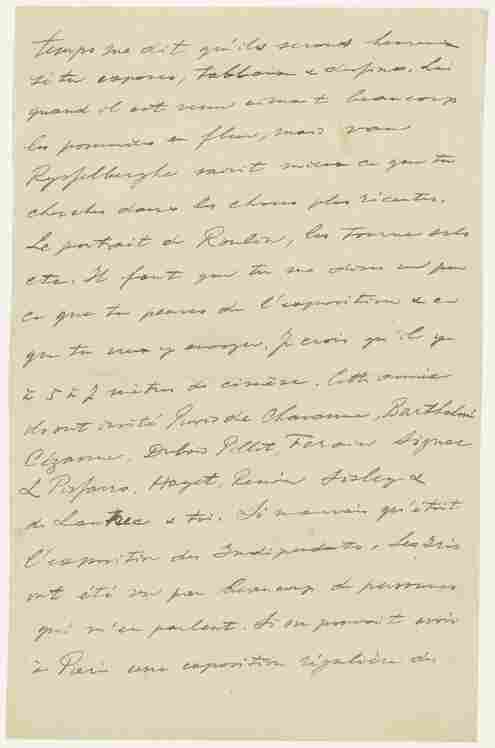 temps me dit qu'ils seront heureux
si tu exposes, tableaux & dessins. Lui
quand il est venu aimait beaucoup
les pommiers en fleur, mais van
Rysselberghe saisit mieux ce que tu
cherches dans les choses plus récentes.
Le portrait de Roulin, les Tournesols
etc. Il faut que tu me dises un peu
ce que tu penses de l'exposition & ce
que tu veux y envoyer. Je crois qu'il y a
à 5 à 7 mètres de cimaise. Cette année
ils ont invité Puvis de Chavannes, Bartholomé
Cézanne, Dubois Pillet, Forain Signac
L Pissarro, Hayet, Renoir Sisley &
de Lautrec & toi. Si mauvais qu'était
l'exposition des Indépendants, les Iris
ont été vu par beaucoup de personnes
qui m'en parlent. Si on pouvait avoir
à Paris une exposition régulière de